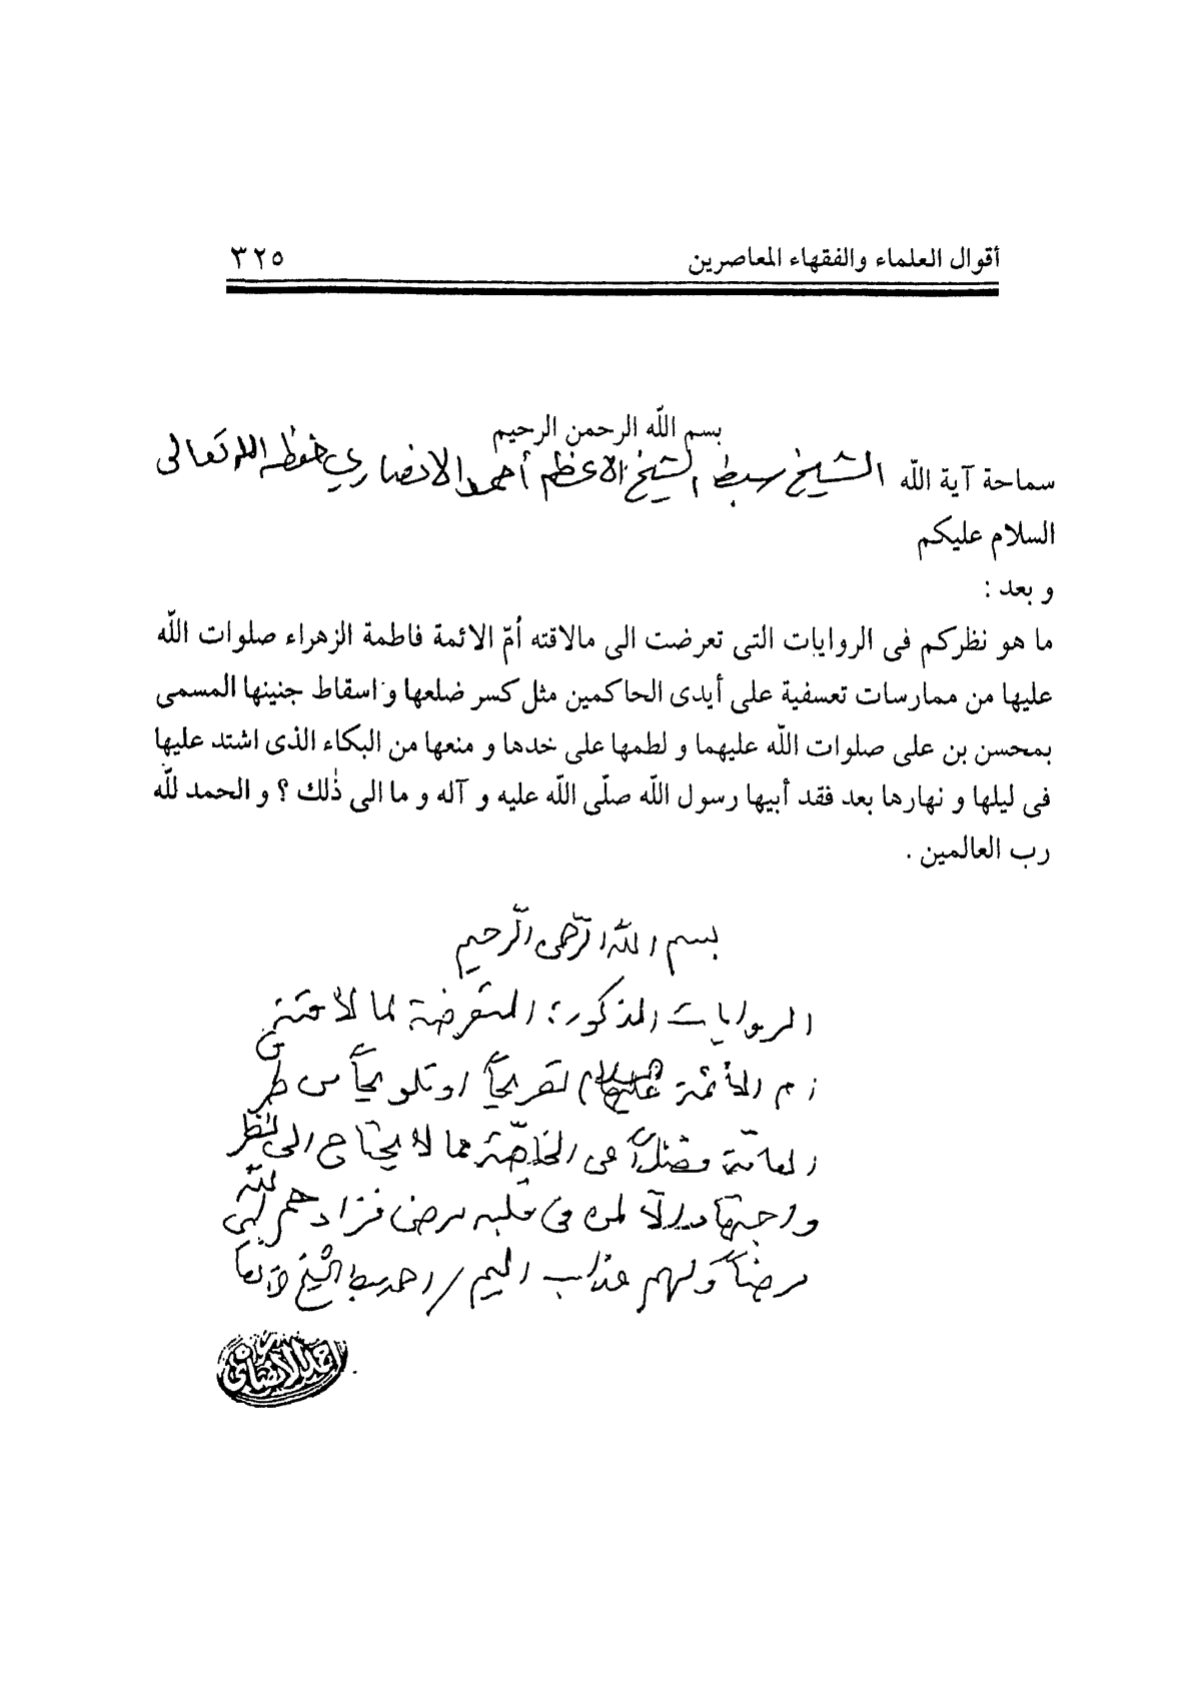 أقوال العلماء والفقهاء المعاصرين ٣٢٥
بسم اللّه الرحمن الرحيم
سماحة آية اللّه الشيخ سبط الشيخ الاعظم أحمد الانصاري حفظه الله تعالى
السلام عليكم
و بعد :
ما هو نظركم فى الروايات التى تعرضت الى مالاقته أمّ الائمة فاطمة الزهراء صلوات اللّه
عليها من ممارسات تعسفية على أيدى الحاكمين مثل كسر ضلعها و اسقاط جنينها المسمى
بمحسن بن على صلوات اللّه عليهما و لطمها على خدها و منعها من البكاء الذى اشتد عليها
فى ليلها و نهارها بعد فقد أبيها رسول اللّه صلّى اللّه عليه و آله و ما الى ذٰلك ؟ و الحمد للّه
رب العالمين .
بسم اللّه الرّحمن الرّحيم
الروايات المذكورة المتعرضة لما لاقته
ام الأئمة عليها السلام تصريحاً او تلويحاً من طرق
العامّة فضلاً عن الخاصّة مما لا يحتاج الى النظر
واجبتها الّا لمن فى قلبه مرض فزادهم اللّه
مرضاً ولهم عذاب اليم / احمد سبط الشيخ الانصارى
احمد الانصارى